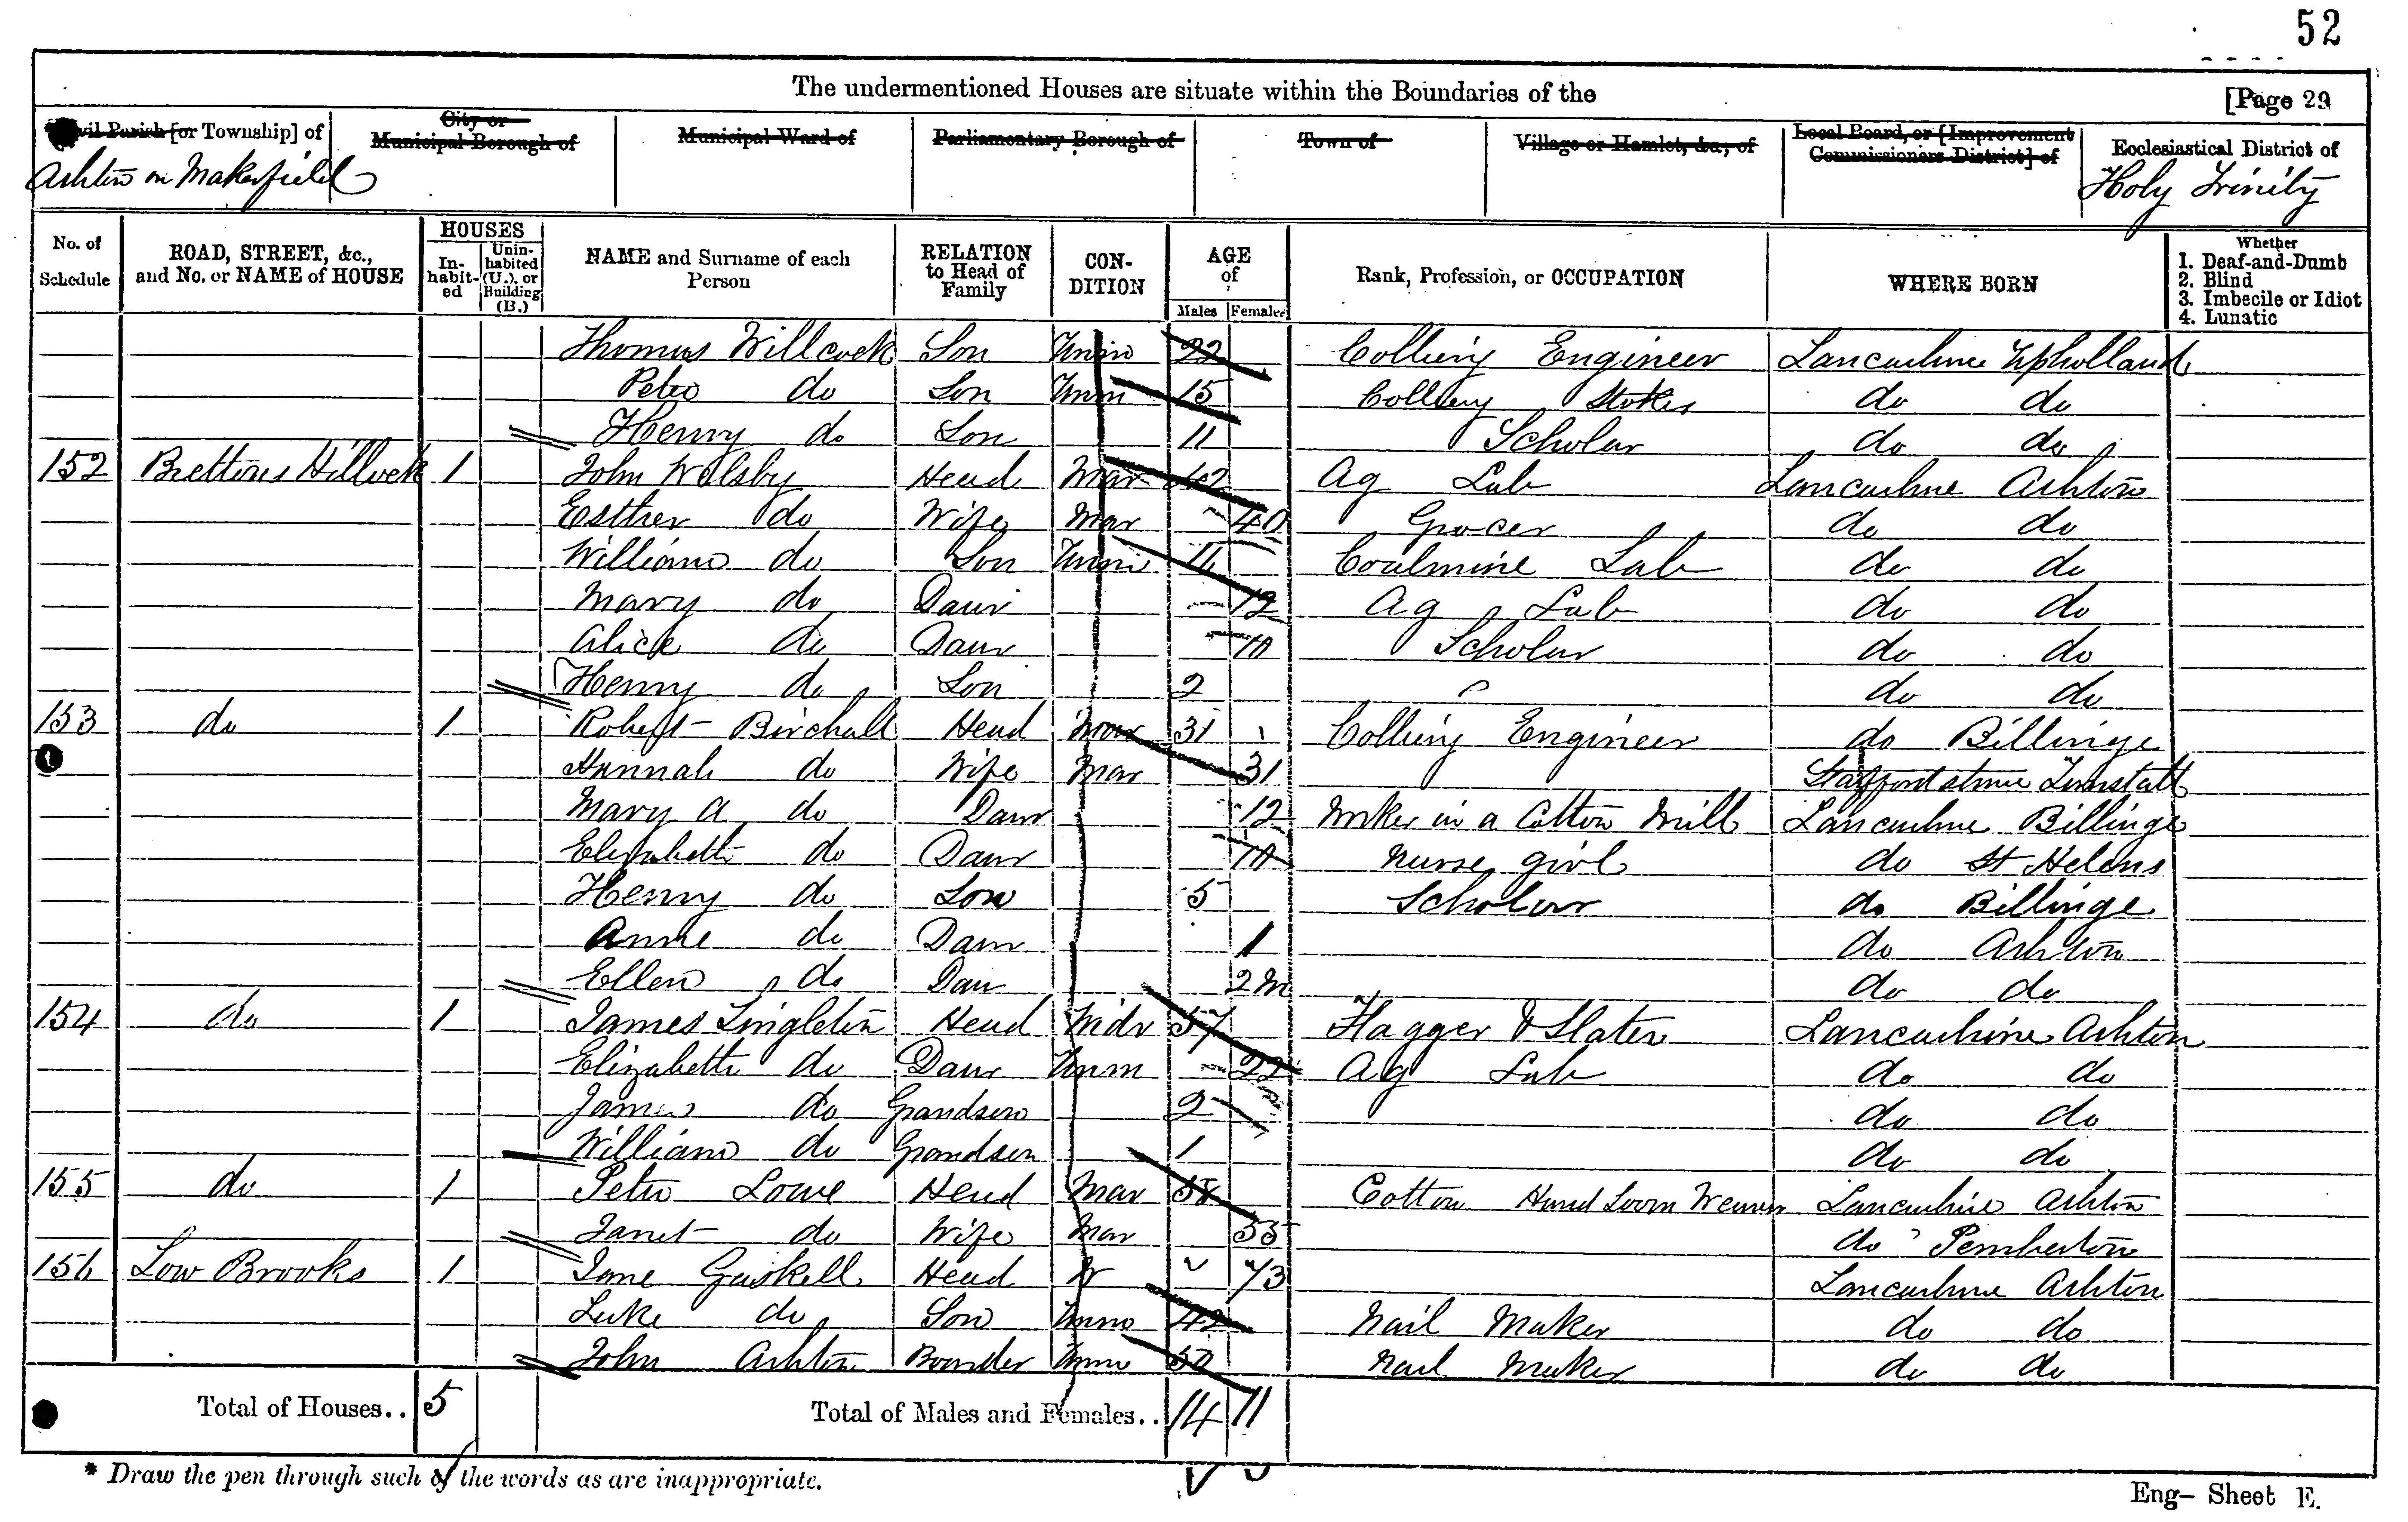 52
The undermentioned Houses are situate within the Boundaries of the [Page 29
Civil Parish [or Township] of City or Municipal Borough of Municipal Ward of Parliamentary Borough of Town of Village or Hamlet, &c., of Local Board, or [Improvement Commissioners District] of Ecclesiastical District of
Ashton in Makerfield Holy Trinity
No. of Schedule ROAD, STREET, &c., and No. or NAME of HOUSE HOUSES In-habit-ed Unin-habited (U.), or Building (B.) NAME and Surname of each Person RELATION to Head of Family CON-DITION AGE of Males Females Rank, Profession, or OCCUPATION WHERE BORN Whether 1. Deaf-and-Dumb 2. Blind 3. Imbecile or Idiot 4. Lunatic
Thomas Willcock Son Unm 22 Colliery Engineer Lancashire Upholland
Peter do Son Unm 15 Colliery Stoker do do
Henry do Son 11 Scholar do do
152 Brettons Hillock 1 John Welsby Head Mar 42 Ag Lab Lancashire Ashton
Esther do Wife Mar 40 Grocer do do
William do Son Unm Coalmine Lab do do
Mary do Daur 12 Ag Lab do do
Alice do Daur 10 Scholar do do
Henry do Son 2 do do
153 do 1 Robert Birchall Head Mar 31 Colliery Engineer do Billinge
Hannah do Wife Mar 31 Staffordshire Tunstall
Mary A do Daur 12 Worker in a Cotton Mill Lancashire Billinge
Elizabeth do Daur 10 Nurse girl do St Helens
Henry do Son 5 Scholar do Billinge
Anne do Daur 1 do Ashton
Ellen do Dau 2m do do
154 do 1 James Singleton Head Widr 57 Flagger & Slater Lancashire Ashton
Elizabeth do Daur Unm 22 Ag Lab do do
James do Grandson 2 do do
William do Grandson 1 do do
155 do 1 Peter Lowe Head Mar 58 Cotton Hand Loom Weaver Lancashire Ashton
Janet do Wife Mar 55 do Pemberton
156 Low Brooks 1 Jane Gaskell Head W 73 Lancashire Ashton
Luke do Son Unm 42 Nail Maker do do
John Ashton Boarder Unm 50 Nail Maker do do
Total of Houses.. 5 Total of Males and Females.. 14 11
* Draw the pen through such of the words as are inappropriate.
Eng— Sheet E.